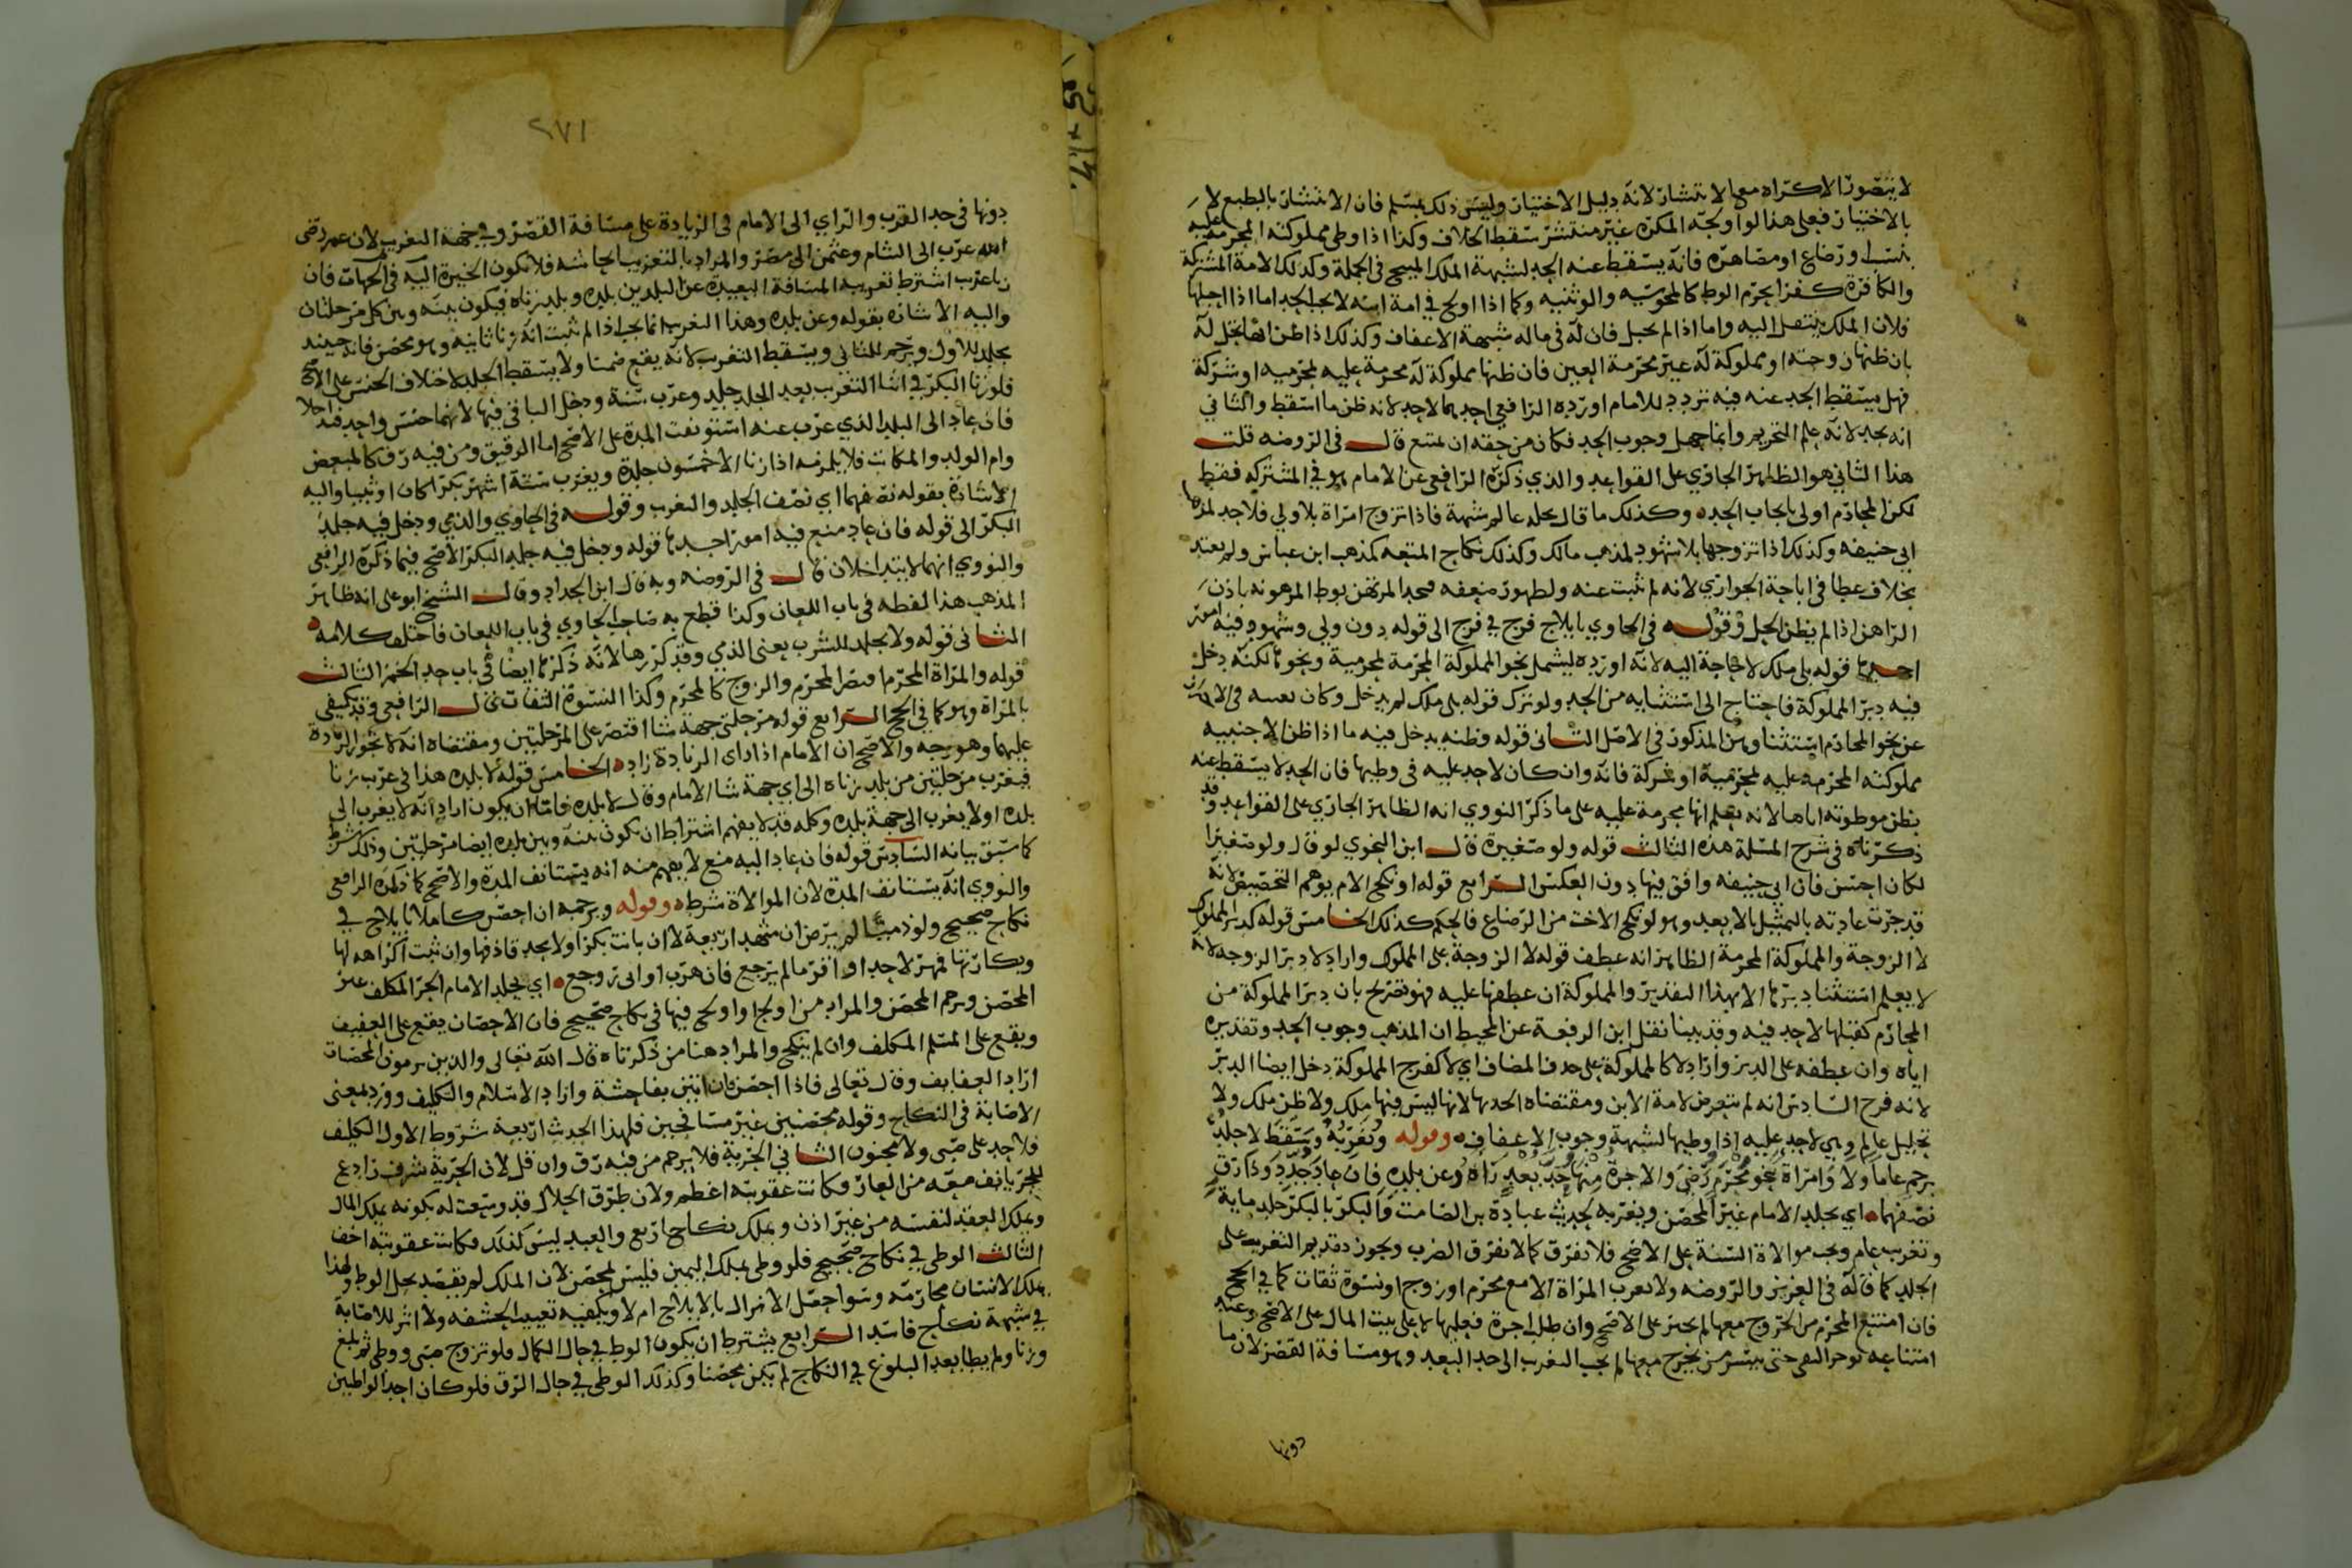 لا يتصور الاكراه معها لا نتشار لانه دليل الاختيار وليس ذلك بمسلم فان الانتشار بالطبع لا
بالاختيار فعلى هذا لو اولجه المكره غير منتشر سقط الخلاف وكذا اذا وطى مملوكته المحرمه عليه
بنسب او رضاع او مصاهره فانه يسقط عنه الحد لشبهة الملك المبيح في الجملة وكذلك الامة المشتركة
والكافرة كفرا يحرم الوطى كالمجوسيه والوثنيه وكما اذا اولج في امة ابنه لا يجب الحد اما اذا احبلها
فلان الملك ينتقل اليه واما اذا لم تحبل فان له في ماله شبهة الاعفاف وكذلك اذا ظن انها تحل له
بان ظنها زوجته او مملوكة له غير محرمة العين فان ظنها مملوكة له محرمة عليه لمحرميه او شركة
فهل يسقط الحد عنه فيه تردد للامام اورده الرافعي احدهما لا حد لانه ظن ما اسقط والثاني
انه يحد لانه علم التحريم وانما جهل وجوب الحد فكان من حقه ان يمتنع قال في الروضه قلت
هذا الثاني هو الظاهر الجاري على القواعد والذي ذكره الرافعي عن الامام هو في المشتركه فقط
لكن المحارم اولى بايجاب الحد وكذلك ما قال بحله عالم شبهة فاذا تزوج امراة بلا ولي فلا حد لمذهب
ابي حنيفه وكذلك اذا تزوجها بلا شهود لمذهب مالك وكذلك نكاح المتعه لمذهب ابن عباس ولم يعتد
بخلاف عطا في اباحة الجواري لانه لم يثبت عنه ولظهور ضعفه فيحد المرتهن بوطى المرهونه باذن
الراهن اذا لم يظن الحل وقوله في الحاوي بايلاج فرج في فرج الى قوله دون ولي وشهود فيه امور
احدها قوله بلي ملك لا حاجة اليه لانه اورده ليشمل نحو المملوكة المحرمة لمحرمية ونحوها لكنه دخل
فيه دبر المملوكة فاحتاج الى استثنايه من الحد ولو ترك قوله بلي ملك لم يدخل وكان
عن نحو المحارم استثنا المذكور في الاصل الثاني قوله وظنه يدخل فيه ما اذا ظن الاجنبيه
مملوكته المحرمه عليه لمحرمية او شركة فانه وان كان لا حد عليه في وطيها فان الحد لا يسقط عنه
بظن موطوته اياها لانه يعلم انها محرمة عليه على ما ذكر النووي انه الظاهر الجاري على القواعد وقد
ذكرناه في شرح المسلة هذه الثالث قوله ولو صغيرة قال ابن النحوي لو قال ولو صغيرا
لكان احسن فان ابي حنيفه وافق فيها دون العكس الرابع قوله او نكح الام يوهم التخصيص لانه
قد جرت عادته بالتمثيل بالابعد وهو لو نكح الاخت من الرضاع فالحكم كذلك الخامس قوله كدبر المملوك
لا الزوجة والمملوكة المحرمة الظاهر انه عطف قوله لا الزوجة على المملوك واراد لا دبر الزوجه لانه
لا يعلم استثنا دبرها الا بهذا التقدير والمملوكة ان عطفها عليه فهو تصريح بان دبر المملوكة من
المحارم كقبلها لا حد فيه وقد بينا نقل ابن الرفعة عن المحيط ان المذهب وجوب الحد وتقديره
اياه وان عطفه على الدبر واراد لا كالمملوكة على حذف المضاف اي لا كفرج المملوكة دخل ايضا الدبر
لانه فرج السادس انه لم يتعرض لامة الابن ومقتضاه الحد بها لانها ليس فيها ملك ولا ظن ملك ولا
تحليل عالم وهي لا حد عليه اذا وطيها لشبهة وجوب الاعفاف وقوله ويُغَرِّبُهُ ويَسْقُطُ لا جلد
برجم عاما ولا وامراة بنحو محرم رضي والاجرة منها حد بعد زناه وعن بلده فان عاد جدد وذا رق
نصفهما اي يجلد الامام غير المحصن ويغربه لحديث عبادة بن الصامت والبكر بالبكر جلد ماية
وتغريب عام ويجب موالاة السنة على الاصح فلا تفرق كما لا تفرق الضرب ويجوز تقديم التغريب على
الجلد كما قاله في العزيز والروضه ولا تغرب المراة الا مع محرم او زوج او نسوة ثقات كما في الحج
فان امتنع المحرم من الخروج معها لم يجبر على الاصح وان طلب اجرة فعليها لا على بيت المال على الاصح وعند
امتناعه يوخر النفي حتى يتيسر من يخرج معها ثم يجب التغريب الى حد البعد وهو مسافة القصر لان ما
دونها
٢٧١
دونها في حد القرب والراي الى الامام في الزيادة على مسافة القصر وفي جهة التغريب لان عمر رضى
الله غرب الى الشام وعثمن الى مصر والمراد بالتغريب ايحاشه فلا تكون الخيرة اليه في الجهات فان
زنا غريب اشترط تغريبه المسافة البعيدة عن البلدين بلده وبلد زناه فيكون بينه وبين كل مرحلتان
واليه الاشارة بقوله وعن بلده وهذا التغريب انما يجب اذا لم يثبت انه زنا ثانيه وهو محصن فانه حينئذ
يجلد للاول ويرجم للثاني ويسقط التغريب لانه يقع ضمنا ولا يسقط الجلد لاختلاف الجنس على الاصح
فلو زنا البكر في اثنا التغريب بعد الجلد جلد وغرب سنة ودخل الباقي فيها لانهما جنس واحد فتداخلا
فان عاد الى البلد الذي غرب عنه استونفت المدة على الاصح اما الرقيق ومن فيه رق كالمبعض
وام الولد والمكاتب فلا يلزمه اذا زنا الا خمسون جلدة ويغرب ستة اشهر بكرا كان او ثيبا واليه
الاشارة بقوله نصفهما اي نصف الجلد والتغريب وقوله في الحاوي والذمي ودخل فيه جلد
البكر الى قوله فان عاد منع فيه امور احدها قوله ودخل فيه جلد البكر الاصح فيما ذكره الرافعي
والنووي انهما لا يتداخلان قال في الروضه وبه قال ابن الحداد وقال الشيخ ابو علي انه ظاهر
المذهب هذا لفظه في باب اللعان وكذا قطع به صاحب الحاوي في باب اللعان فاختلف كلامه
الثاني قوله ولا يجلد للشرب يعنى الذمي وقد كررها لانه ذكرها ايضا في باب حد الخمر الثالث
قوله والمراة المحرم اقتصر المحرم والزوج كالمحرم وكذا النسوة الثقات قال الرافعي وقد يكتفى
بالمراة وهو كما في الحج الرابع قوله مرحلتي جهة شا اقتصر على المرحلتين ومقتضاه انه لا تجوز الزيادة
عليهما وهو وجه والاصح ان الامام اذا راى الزيادة زاد الخامس قوله لا بلده هذا في غريب زنا
فيغرب مرحلتين من بلد زناه الى اي جهة شا الامام وقال لا بلده فاما ان يكون اراد انه لا يغرب الى
بلده او لا يغرب الى جهة بلده وكله قد لا يفهم اشتراط ان تكون بينه وبين بلده ايضا مرحلتين وذلك شرط
كما سبق بيانه السادس قوله فان عاد اليه منع لا يفهم منه انه يستانف المدة والاصح كما ذكره الرافعي
والنووي انه يستانف المدة لان الموالاة شرط وقوله ويرجمه ان احصن كاملا بايلاج في
نكاح صحيح ولو ذميا لم يترض ان شهد اربعة لا ان بانت بكرا ولا يحد قاذفها وان ثبت اكراهه لها
وبكارتها فمهر لا حد او اقر ما لم يرجع فان هرب او ابى روجع اي يجلد الامام الحر المكلف غير
المحصن ويرجم المحصن والمراد من اولج او اولج فيها في نكاح صحيح فان الاحصان يقع على العفيف
ويقع على المسلم المكلف وان لم ينكح والمراد هنا من ذكرناه قال الله تعالى والذين يرمون المحصنات
اراد العفايف وقال تعالى فاذا احصن فان اتين بفاحشة واراد الاسلام والتكليف وورد بمعنى
الاصابة في النكاح وقوله محصنين غير مسافحين فلهذا الحدث اربعة شروط الاول التكليف
فلا حد على صبي ولا مجنون الثاني الحرية فلا يرجم من فيه رق وان قل لان الحرية شرف زادع
للحر بانف معه من العار فكانت عقوبته اعظم ولان طرق الحلال قد وسعت له بكونه يملك المال
ويملك العقد لنفسه من غير اذن ويملك نكاح اربع والعبد ليس كذلك فكانت عقوبته اخف
الثالث الوطى في نكاح صحيح فلو وطى بملك اليمين فليس بمحصن لان الملك لم يقصد بحل الوطى ولهذا
يملك الانسان محارمه وسوا حصل الانزال بالايلاج ام لا ويكفيه تغييب الحشفه ولا اثر للاصابة
في شبهة نكاح فاسد الرابع يشترط ان يكون الوطى في حال الكمال فلو تزوج صبي ووطى ثم بلغ
وزنا ولم يطا بعد البلوغ في النكاح لم يكن محصنا وكذلك الوطى في حال الرق فلو كان احد الواطيين